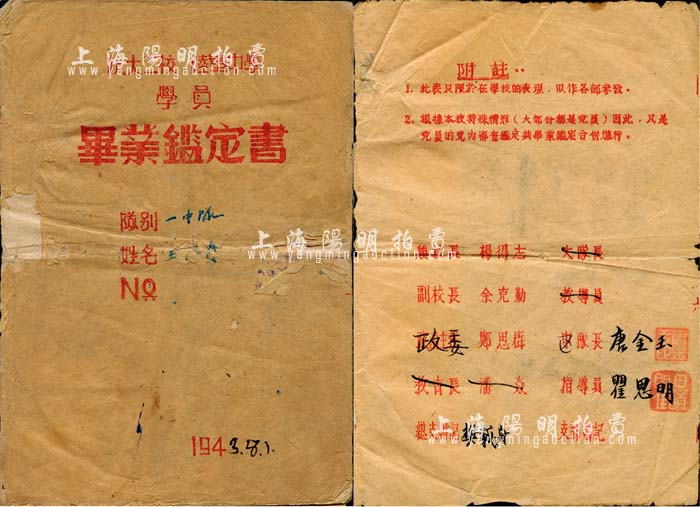 學員
畢業鑑定書
隊別 一中隊
姓名
No
1943.8.1.
附註：
1. 此表只限於在學校的表現，以作各部參攷。
2. 根據本校特殊情形（大部份都是党員）因此，只是
党員的党內審查鑑定與畢業鑑定合併進行。
校長 楊得志 大隊長
副校長 余克勤 教導員
政委 鄭思梅 隊長 唐金玉
教育長 潘焱 指導員 瞿思明
總支書記 支部書記
上海陽明拍賣
yangmingauction.com
上海陽明拍賣
yangmingauction.com
上海陽明拍賣
yangmingauction.com
上海陽明拍賣
yangmingauction.com